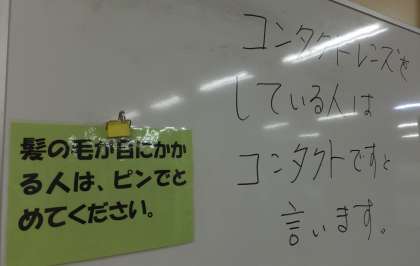 髪の毛が目にかか
る人は、ピンでと
めてください。
コンタクトレンズを
している人は
コンタクトですと
言います。